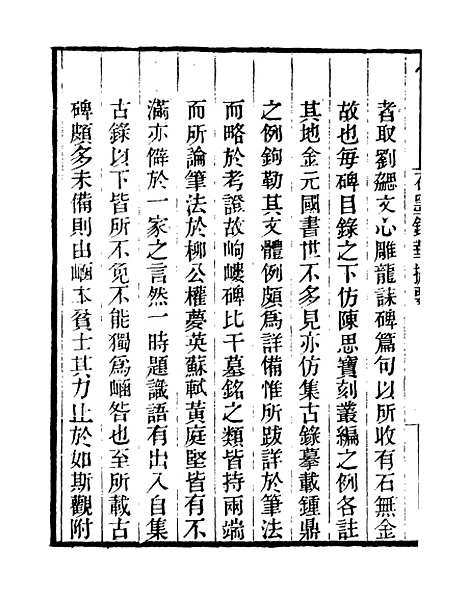 者取劉勰文心雕龍誄碑篇句以所收有石無金
故也每碑目錄之下仿陳思寶刻叢編之例各註
其地金元國書世不多見亦仿集古錄摹載鍾鼎
之例鉤勒其文體例頗爲詳備惟所跋詳於筆法
而略於考證故岣嶁碑比干墓銘之類皆持兩端
而所論筆法於柳公權夢英蘇軾黃庭堅皆有不
滿亦僻於一家之言然一時題識語有出入自集
古錄以下皆所不免不能獨爲崡咎也至所載古
碑頗多未備則由崡本貧士其力止於如斯觀附